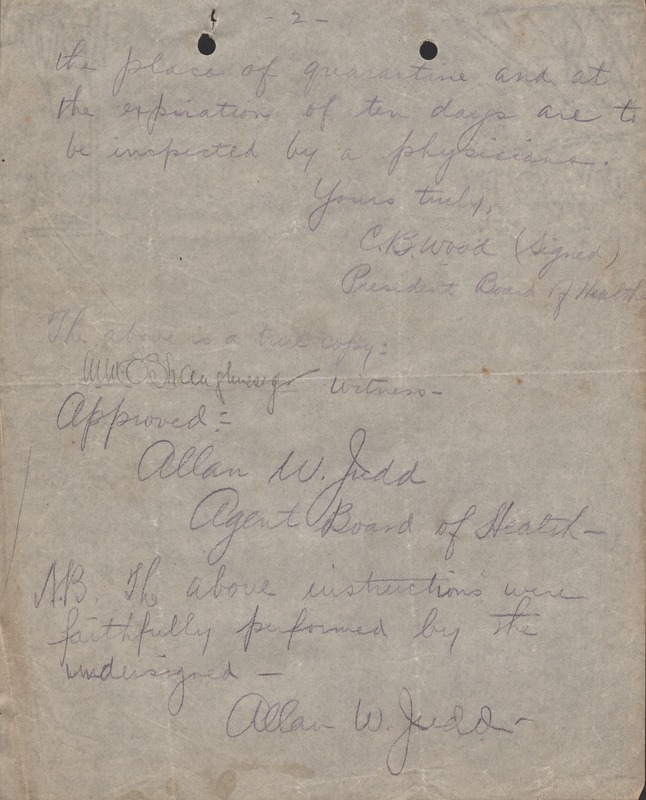 - 2 -
the place of quarantine and at
the expiration of ten days are to
be inspected by a physician.
Yours truly,
C.B. Wood (Signed)
President Board of Health
The above is a true copy:
Witness-
Approved:-
Allan W. Judd
Agent Board of Health-
N.B. The above instructions were
faithfully performed by the
undersigned -
Allan W. Judd-